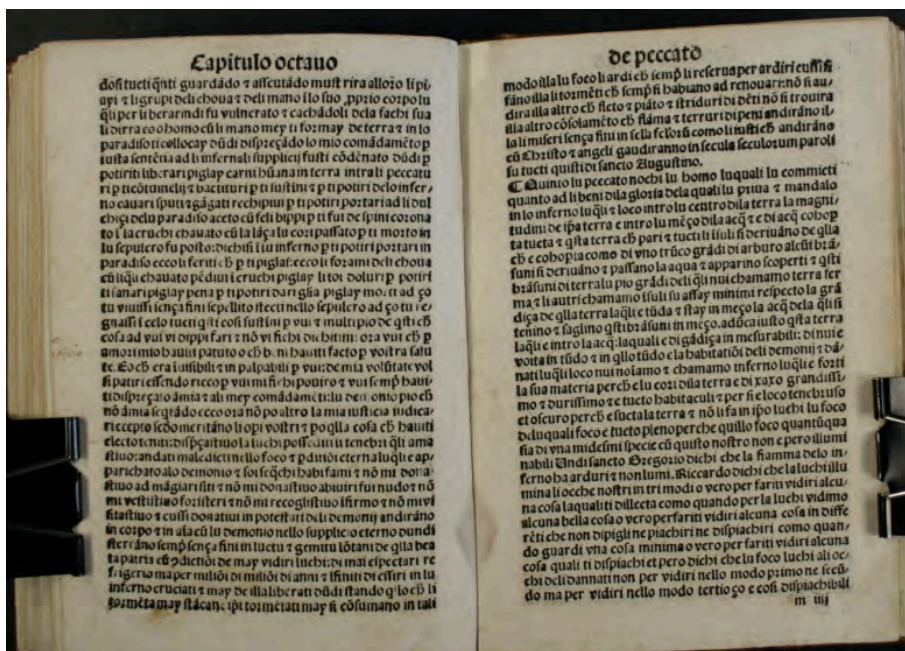 Capitulo octauo
dosi tucti q̃nti guardādo τ ascutādo must rira alloʒo li pi,
ayi τ li grupi deli choua τ deli mano ī lo suo ꝓprio corpo lu
q̃li per liberarindi fu vulnerato τ cachādoli dela fachi sua
li dirra coo homo cū li mano mey ti formay de terra τ in lo
paradiso ti collocay dūdi dispreçādo lo mio comādamēto p̱
iusta sentētia ad li infernali supplicij fusti cōdēnato dūdi p̱
potiriti liberari piglay carni hūana in terra intra li peccatu
ri p̱ ti cōtūinelij τ bactituri p̱ ti sustini τ p̱ ti potiri delo infer,
no cauari sputi τ gāgati rechipiui p̱ ti potiri portari ad li dul
chiçi delu paradiso aceto cū feli bippi p̱ ti fui de spini corona
to ī la cruchi chauato cū la lāça lu cori passato p̱ ti morto in
lu sepulcro fu posto: dichisi ī lu inferno p̱ ti potiri portari in
paradiso ecco li feriti ch̄ p̱ ti piglai: ecco li foraini deli choua
cū liq̃li chauato pēdiui ī cruchi piglay li toi doluri p̱ potiri
ti sanari piglay pena p̱ ti potiri dari glia piglay morti ad ço
tu viuissi sença fini sepellito stecti nello sepulcro ad ço tu re,
gnassi ī celo tucti q̃sti cosi sustini p̱ vui τ multi pio de q̃sti ch̄
cosa ad vui vi dippi fari τ nō vi fichi dichitimi: ora vui ch̄ p̱
amori mio hauiti patuto o ch̄ bñ hauiti facto p̱ vostra salu
te. Eo ch̄ era īuisibili τ in palpabili p̱ vui: de mia volūtate vol
si patiri essendo ricco p̱ vui mi fichi pouiro τ vui semp̱ haui,
ti dispreçato āmia τ ali mey comādamēti: lu demonio pio ch̄
nō āmia seq̃tādo ecco ora nō po altro la mia iusticia iudica,
ri eccepto secōdo meritāno li opi vostri τ po q̃lla cosa ch̄ hauiti
electo teniti: dispçastiuo la luchi possediti li tenebri q̃li ama
stiuo: andati maledicti nello foco τ ꝑditiōi eterna lu q̃li e ap,
parichato alo demonio τ soi seq̃chi habi fami τ nō mi dona,
stiuo ad māgiari siti τ nō mi donastiuo abiuiri fui nudo τ nō
mi vestistiuo foristeri τ nō mi recoglistiuo īfirmo τ nō mi vi
sitastiuo τ cussi donatiui in potestati deli demonij andirāno
in corpo τ in aīa cū lu demonio nello supplicio eterno dundi
sterrāno semp̱ sença fini in luctu τ gemitu lōtani de q̃lla bea
ta patria cū ꝯdictiōi de may vidiri luchi: di mai espectari re
frigerio ma per miliōi di miliōi di anni τ īfiniti di essiri in lu
inferno cruciati τ may de illa liberati dūdi stando q̃lo ch̄ li
tormēta may stācano: ip̄i tormētati may si cōsumano in tali
de peccato
modo illa lu foco li ardi ch̄ semp̱ li reserua per ardiri cussi si
fāno illa li tormēti ch̄ semp̱ si habiano ad renouari: nō si au,
dira illa altro ch̄ fleto τ piāto τ striduri di dēti nō si trouira
illa altro cōsolamēto ch̄ flāma τ terruri di peni andirāno il,
la li miseri sença fini in sella felorū como li iusti ch̄ andirāno
cū Christo τ angeli gaudiranno in secula seculorum paroli
su tucti quisti di sancto Augustino.
¶ Quinto lu peccato nochi lu homo lu quali lu commicti
quanto ad li beni dila gloria dela quali lu priua τ mandalo
in lo inferno lu q̃li e loco intro lu centro dila terra la magni,
tudini de ip̄a terra e intro lu mēço dila acq̃ τ e di acq̃ cohop̱
ta tucta τ q̃sta terra ch̄ pari τ tucti li isuli si deriuāno de q̃lla
ch̄ e cohop̱ta como di vno trūco grādi di arburo alcūi brā,
suni si deriuāno τ passano la aqua τ apparino scoperti τ q̃sti
brāsuni di terra lu pio grādi deli q̃li nui chamamo terra fer
ma τ li autri chamamo isuli su assay minimi respecto la grā
diça de q̃lla terra laq̃li e tūda τ stay in meço la acq̃ dela q̃li si
tenino τ saglino q̃sti brāsuni in meço. adūca iusto q̃sta terra
laq̃li e intro la acq̃: la quali e di gādiça in mesurabili: di nui e
voita in tūdo τ in q̃llo tūdo e la habitatiōi deli demonij τ dā,
nati lu q̃li loco nui noīamo τ chamamo inferno lu q̃li e forti
la sua materia perch̄ e lu cori dila terra e di xaxo grandissi,
mo τ durissimo τ e tucto habitaculi τ per si e loco tenebruso
et oscuro perch̄ e sucta la terra τ nō li fa in ip̄o luchi lu foco
delu quali foco e tucto pleno perche quillo foco quantūqua
sia di vna midesmi specie cū quisto nostro non e pero illumi
nabili Undi sancto Gregorio dichi che la fiamma delo in,
ferno ha arduri τ non lumi. Riccardo dichi che la luchi illu
mina li ocche nostri in tri modi o vero per fariti vidiri alcu,
na cosa la quali ti dillecta como quando per la luchi vidimo
alcuna bella cosa o vero per fariti vidiri alcuna cosa in diffe
rēti che non dipigli ne piachiri ne dispiachiri como quan,
do guardi vna cosa minima o vero per fariti vidiri alcuna
cosa quali ti dispiachi et pero dichi che lu foco luchi ali oc,
chi deli dannati non per vidiri nello modo primo ne secū,
do ma per vidiri nello modo tertio ço e cosi dispiachibili
m iiij